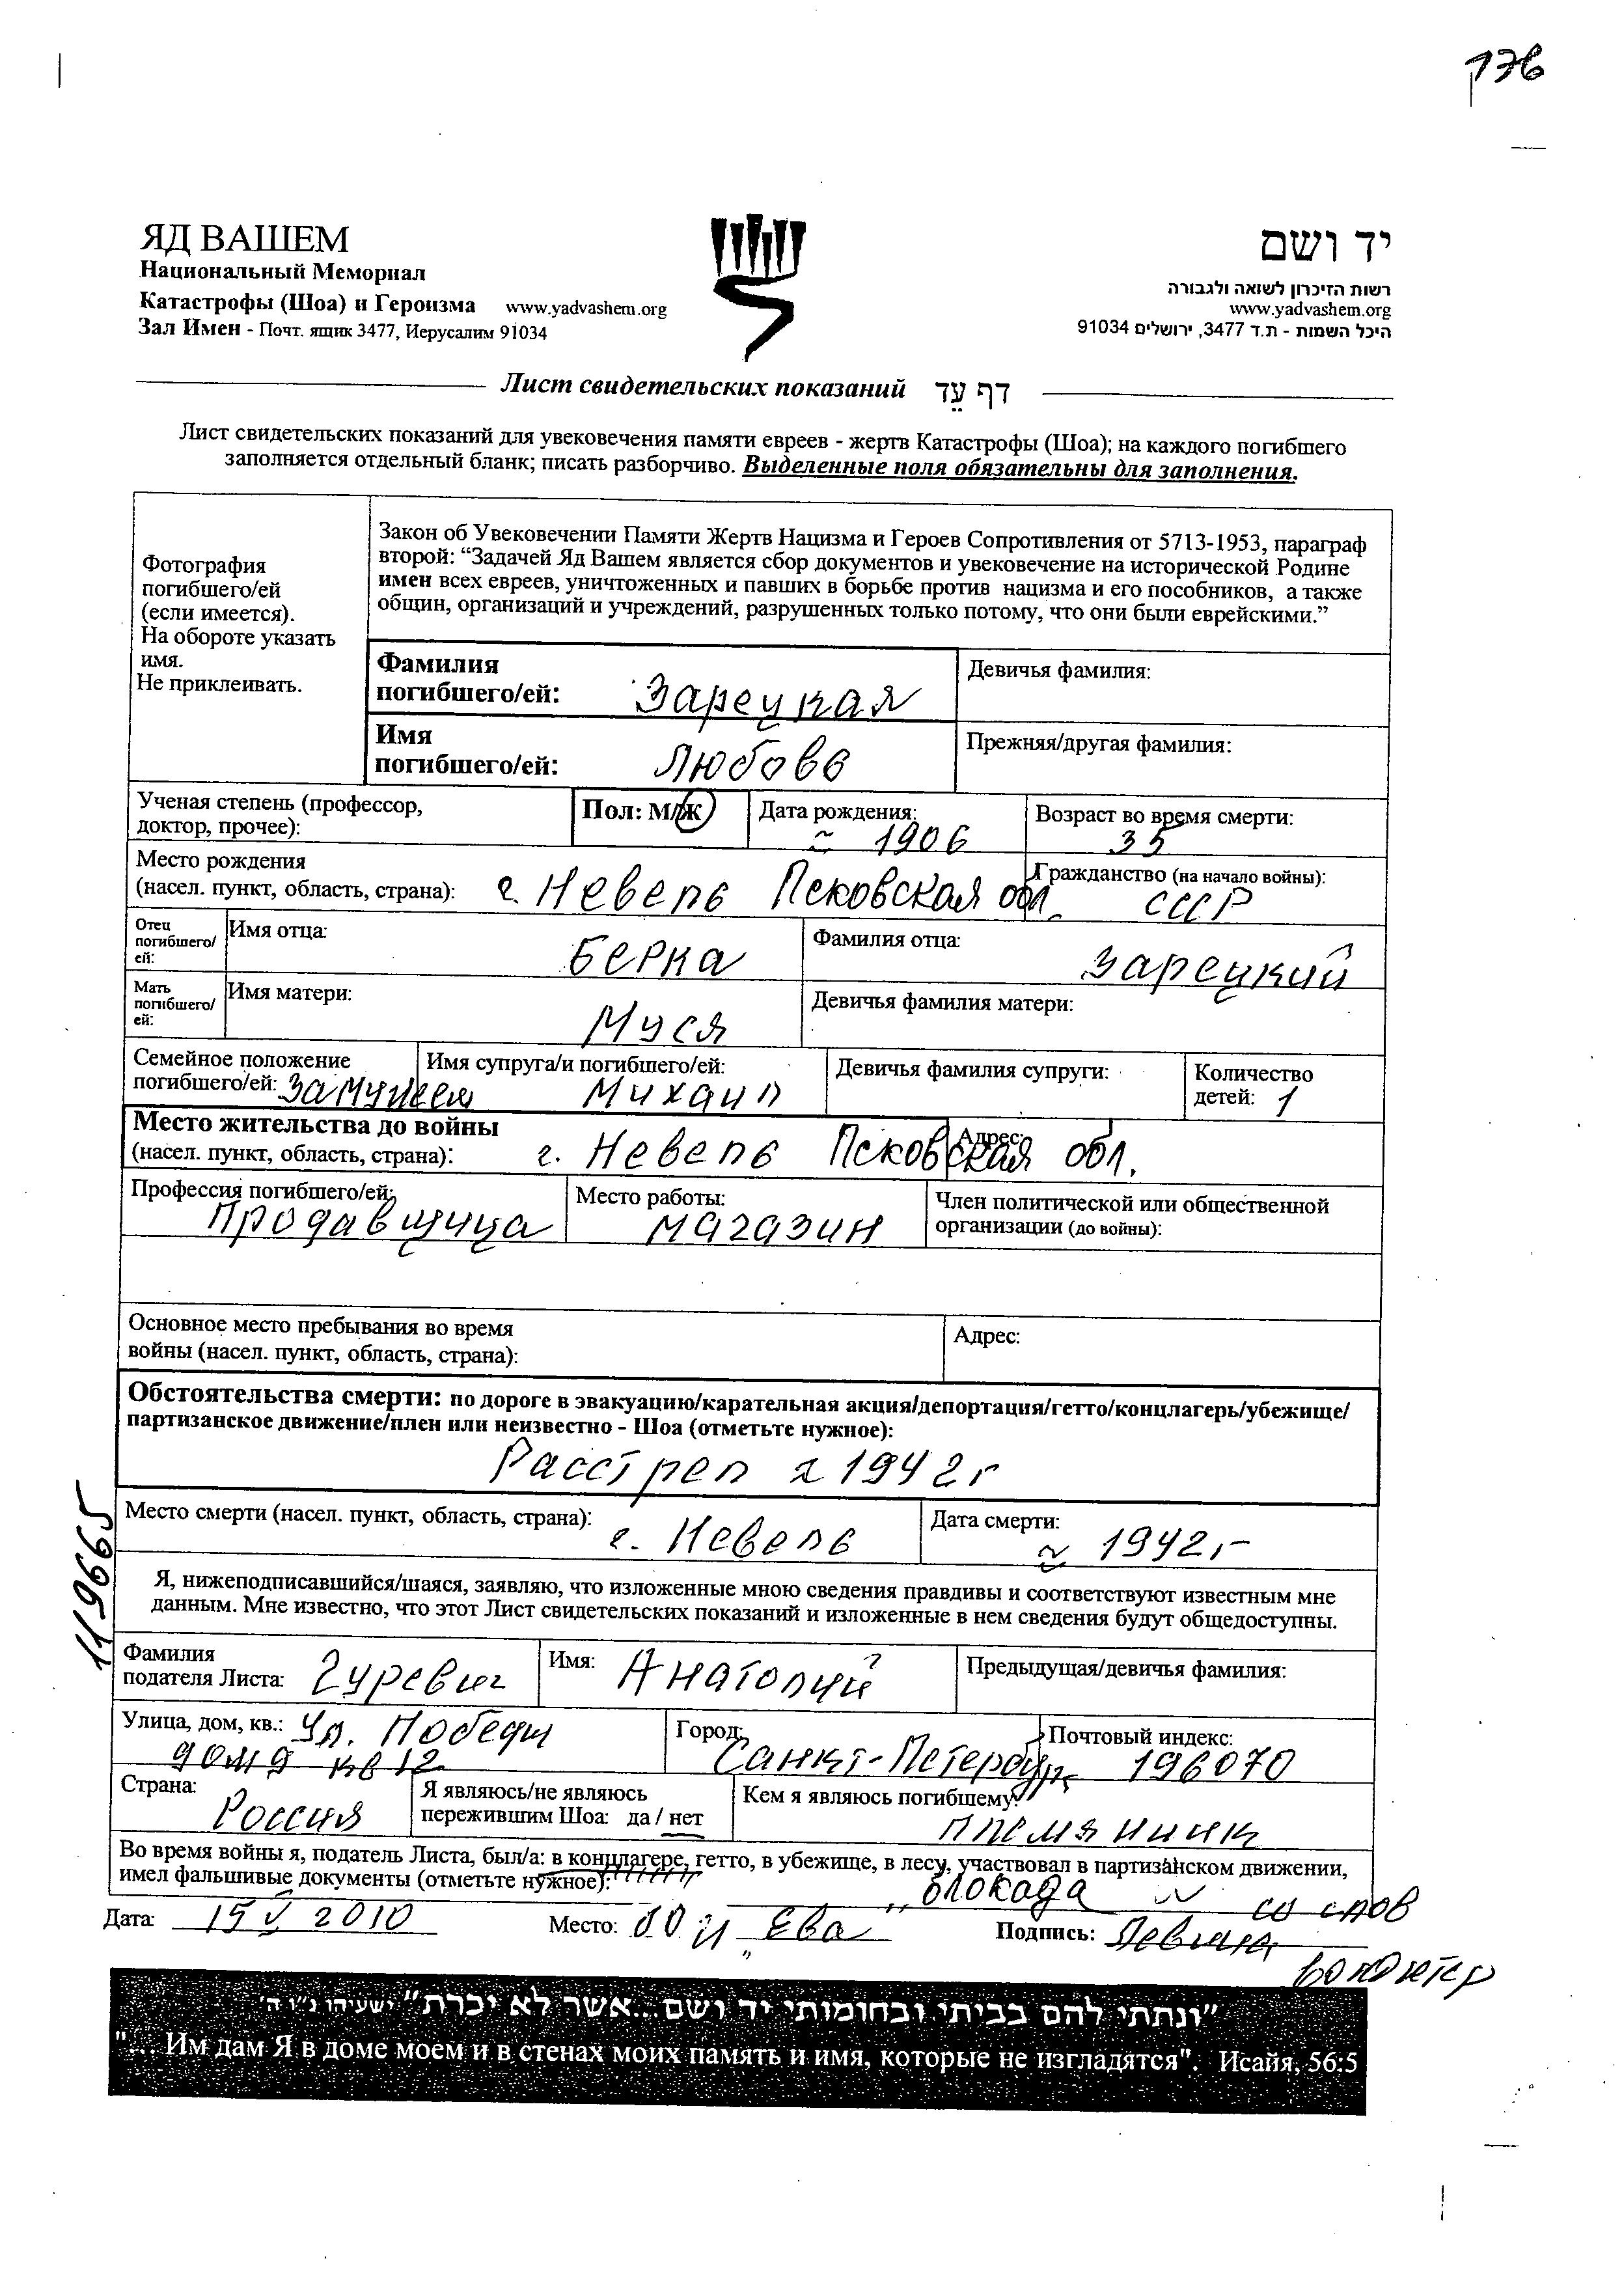 ЯД ВАШЕМ
Национальный Мемориал
Катастрофы (Шоа) и Героизма www.yadvashem.org
Зал Имен - Почт. ящик 3477, Иерусалим 91034
יד ושם
רשות הזיכרון לשואה ולגבורה
www.yadvashem.org
היכל השמות - ת.ד 3477, ירושלים 91034
Лист свидетельских показаний דף עֵד
Лист свидетельских показаний для увековечения памяти евреев - жертв Катастрофы (Шоа); на каждого погибшего
заполняется отдельный бланк; писать разборчиво. Выделенные поля обязательны для заполнения.
Фотография
погибшего/ей
(если имеется).
На обороте указать
имя.
Не приклеивать.
Закон об Увековечении Памяти Жертв Нацизма и Героев Сопротивления от 5713-1953, параграф
второй: “Задачей Яд Вашем является сбор документов и увековечение на исторической Родине
имен всех евреев, уничтоженных и павших в борьбе против нацизма и его пособников, а также
общин, организаций и учреждений, разрушенных только потому, что они были еврейскими.”
Фамилия
погибшего/ей: Зарецкая
Девичья фамилия:
Имя
погибшего/ей: Любовь
Прежняя/другая фамилия:
Ученая степень (профессор,
доктор, прочее):
Пол: М/Ж
Дата рождения:
≈ 1906
Возраст во время смерти:
35
Место рождения
(насел. пункт, область, страна): г. Невель Псковская обл.
Гражданство (на начало войны):
СССР
Отец
погибшего/
ей:
Имя отца:
Берка
Фамилия отца:
Зарецкий
Мать
погибшего/
ей:
Имя матери:
Муся
Девичья фамилия матери:
Семейное положение
погибшего/ей: Замужем
Имя супруга/и погибшего/ей:
Михаил
Девичья фамилия супруги:
Количество
детей: 1
Место жительства до войны
(насел. пункт, область, страна): г. Невель Псковская обл.
Адрес:
Профессия погибшего/ей:
Продавщица
Место работы:
магазин
Член политической или общественной
организации (до войны):
Основное место пребывания во время
войны (насел. пункт, область, страна):
Адрес:
Обстоятельства смерти: по дороге в эвакуацию/карательная акция/депортация/гетто/концлагерь/убежище/
партизанское движение/плен или неизвестно - Шоа (отметьте нужное):
Расстрел ≈ 1942г
119665
Место смерти (насел. пункт, область, страна):
г. Невель
Дата смерти:
≈ 1942г
Я, нижеподписавшийся/шаяся, заявляю, что изложенные мною сведения правдивы и соответствуют известным мне
данным. Мне известно, что этот Лист свидетельских показаний и изложенные в нем сведения будут общедоступны.
Фамилия
подателя Листа: Гуревич
Имя: Анатолий
Предыдущая/девичья фамилия:
Улица, дом, кв.: Ул. Победы
дом 9 кв 12
Город:
Санкт-Петербург
Почтовый индекс:
196070
Страна:
Россия
Я являюсь/не являюсь
пережившим Шоа: да / нет
Кем я являюсь погибшему:
племянник
Во время войны я, податель Листа, был/а: в концлагере, гетто, в убежище, в лесу, участвовал в партизанском движении,
имел фальшивые документы (отметьте нужное):
блокада
со слов
Дата: 15 V 2010
Место: "Ева"
Подпись: Левина
волонтер
"ונתתי להם בביתי ובחומותי יד ושם...אשר לא יכרת" ישעיהו נ"ו ה'
"... Им дам Я в доме моем и в стенах моих память и имя, которые не изгладятся". Исайя, 56:5